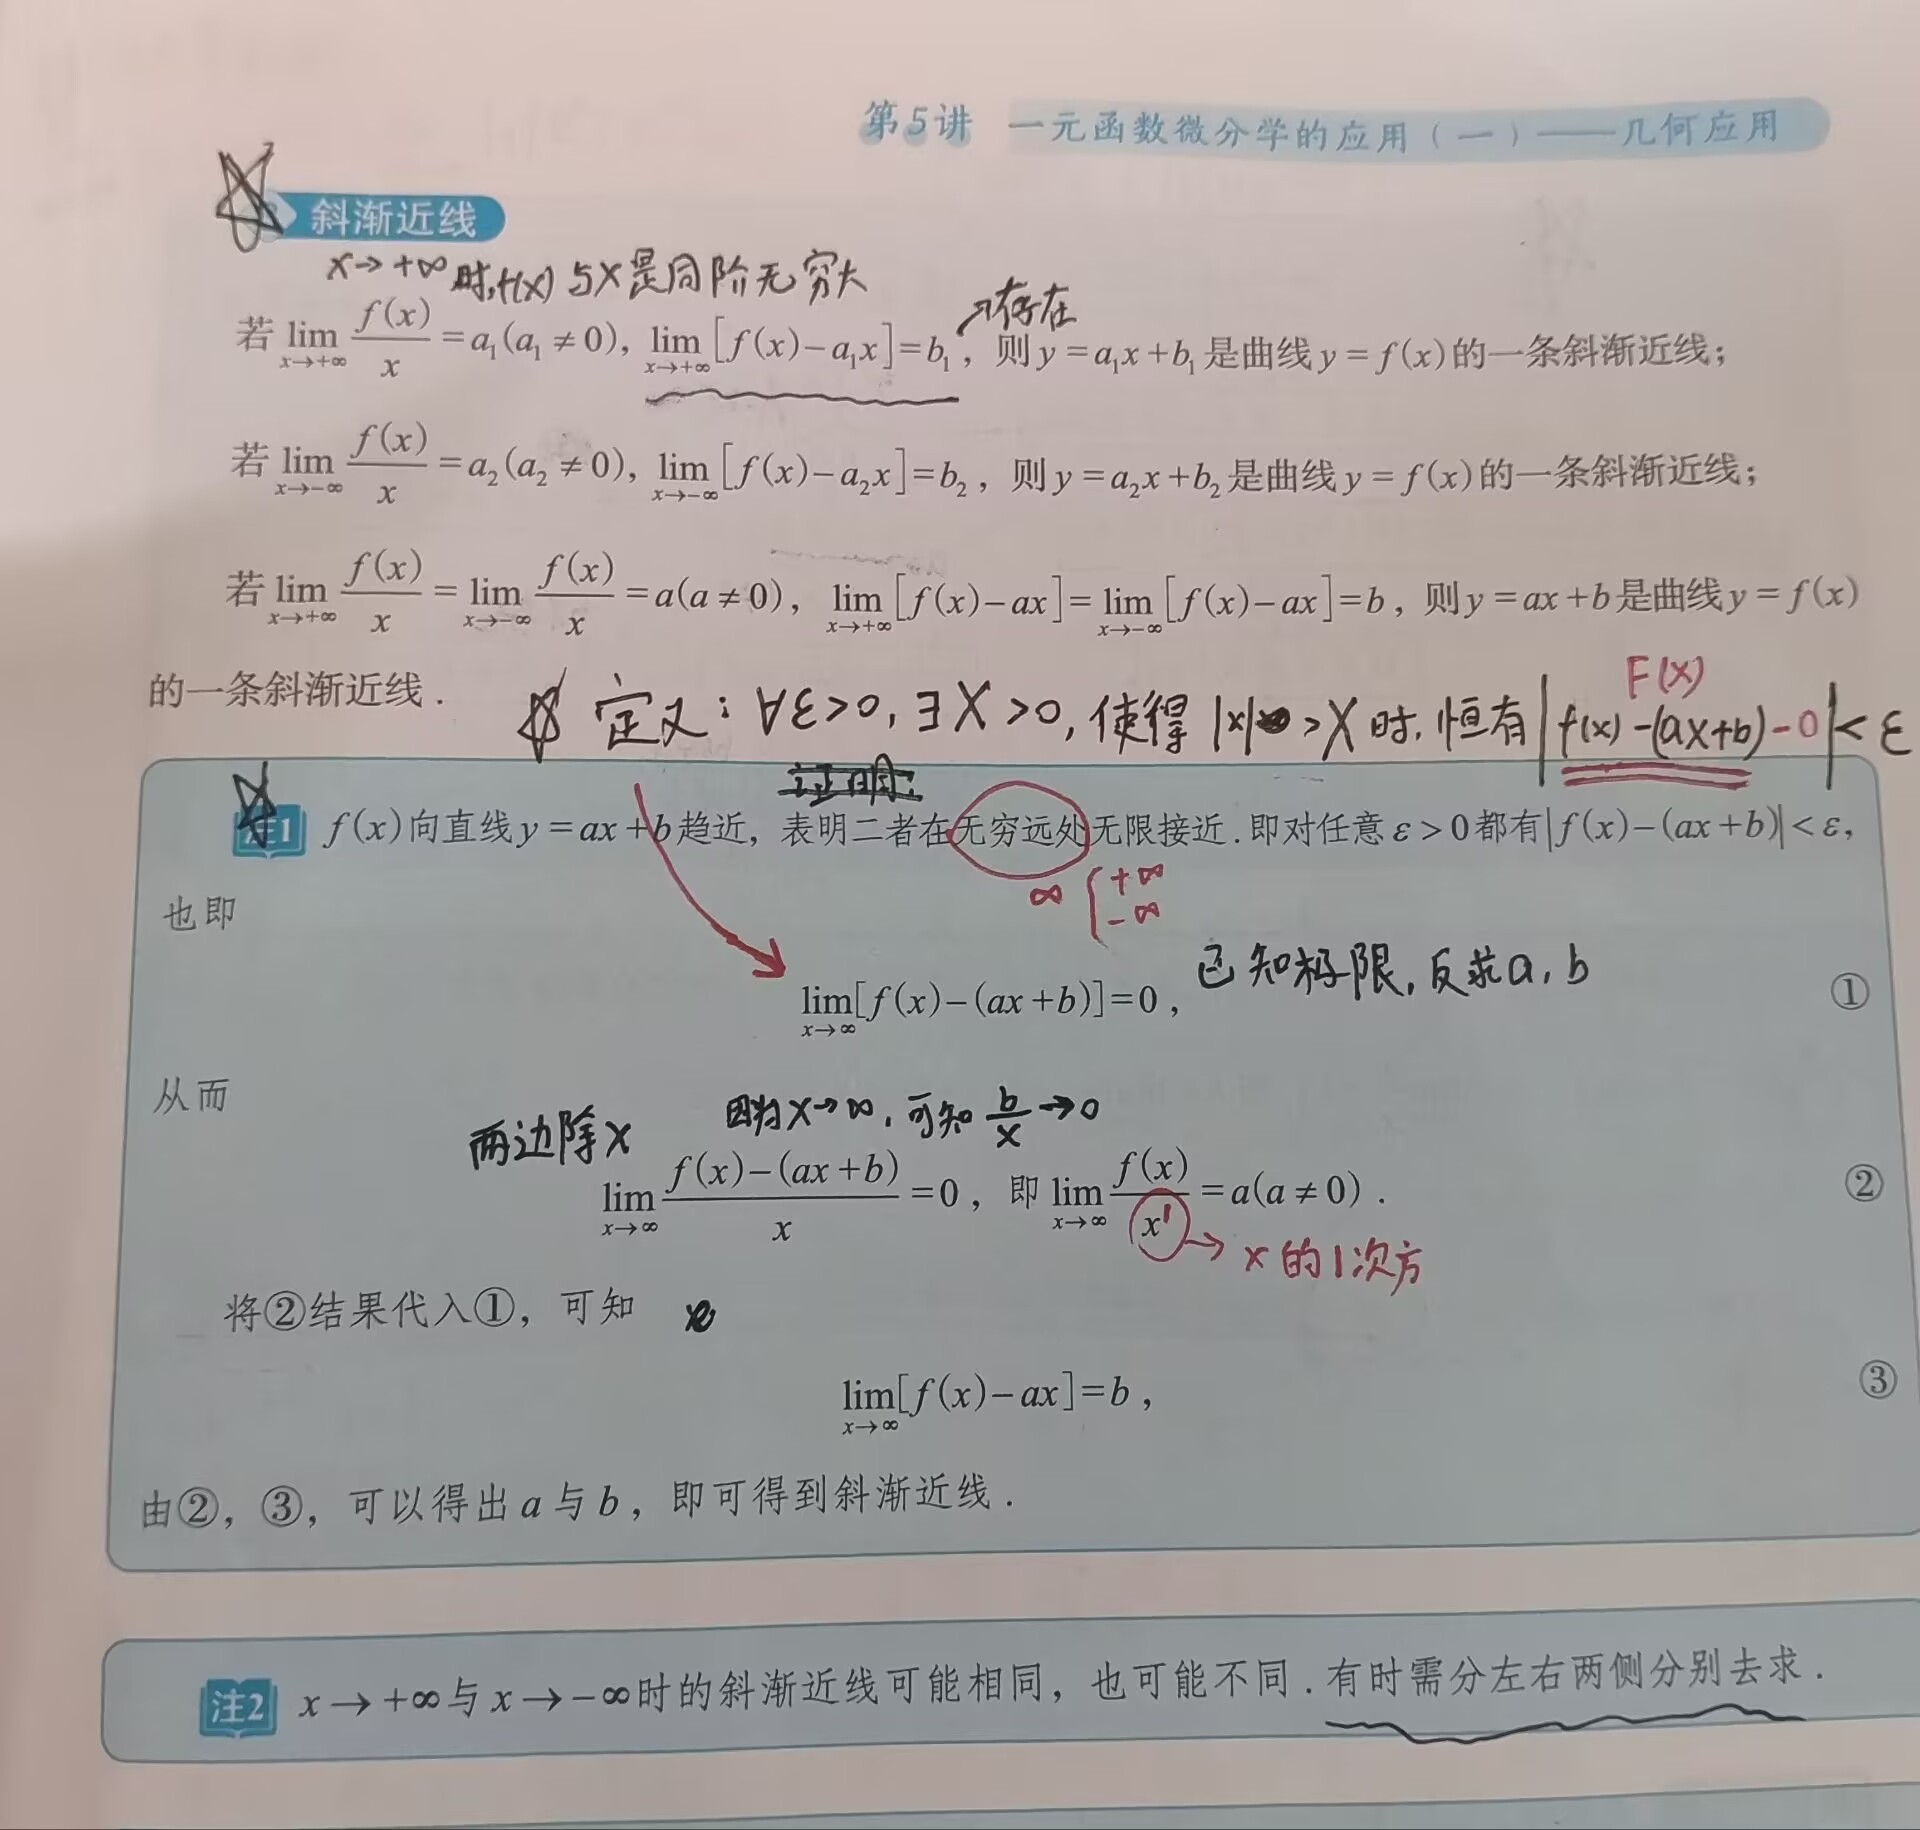 第5讲 一元函数微分学的应用（一）——几何应用
斜渐近线
x→+∞时,f(x)与x是同阶无穷大
↗存在
若 lim_{x→+∞} f(x)/x = a₁(a₁≠0), lim_{x→+∞}[f(x)-a₁x]=b₁, 则y=a₁x+b₁是曲线y=f(x)的一条斜渐近线;
若 lim_{x→-∞} f(x)/x = a₂(a₂≠0), lim_{x→-∞}[f(x)-a₂x]=b₂, 则y=a₂x+b₂是曲线y=f(x)的一条斜渐近线;
若 lim_{x→+∞} f(x)/x = lim_{x→-∞} f(x)/x = a(a≠0), lim_{x→+∞}[f(x)-ax]= lim_{x→-∞}[f(x)-ax]=b, 则y=ax+b是曲线y=f(x)
的一条斜渐近线.
F(x)
定义: ∀ε>0, ∃X>0, 使得|x|>X时, 恒有|f(x)-(ax+b)-0|<ε
证明:
注1 f(x)向直线y=ax+b趋近, 表明二者在无穷远处无限接近.即对任意ε>0都有|f(x)-(ax+b)|<ε,
∞ { +∞
-∞
也即
lim_{x→∞}[f(x)-(ax+b)]=0, 已知极限, 反求a, b ①
从而
两边除x 因为x→∞, 可知 b/x →0
lim_{x→∞} (f(x)-(ax+b))/x =0, 即 lim_{x→∞} f(x)/x¹ =a(a≠0). ②
→ x的1次方
将②结果代入①, 可知
lim_{x→∞}[f(x)-ax]=b, ③
由②, ③, 可以得出a与b, 即可得到斜渐近线.
注2 x→+∞与x→-∞时的斜渐近线可能相同, 也可能不同.有时需分左右两侧分别去求.